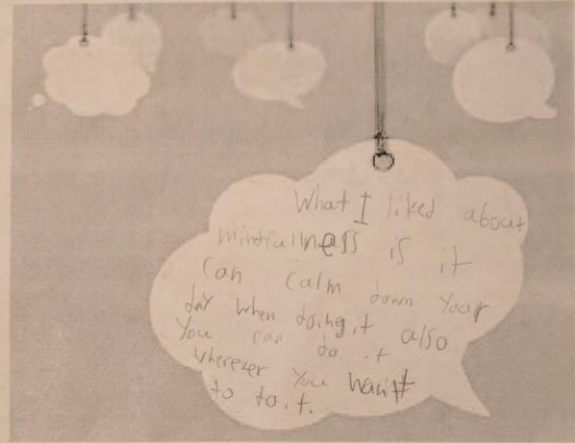 What I liked about
mintfallness is it
Can Calm down your
day when doing it also
You can do it
wherever You want
to to it.